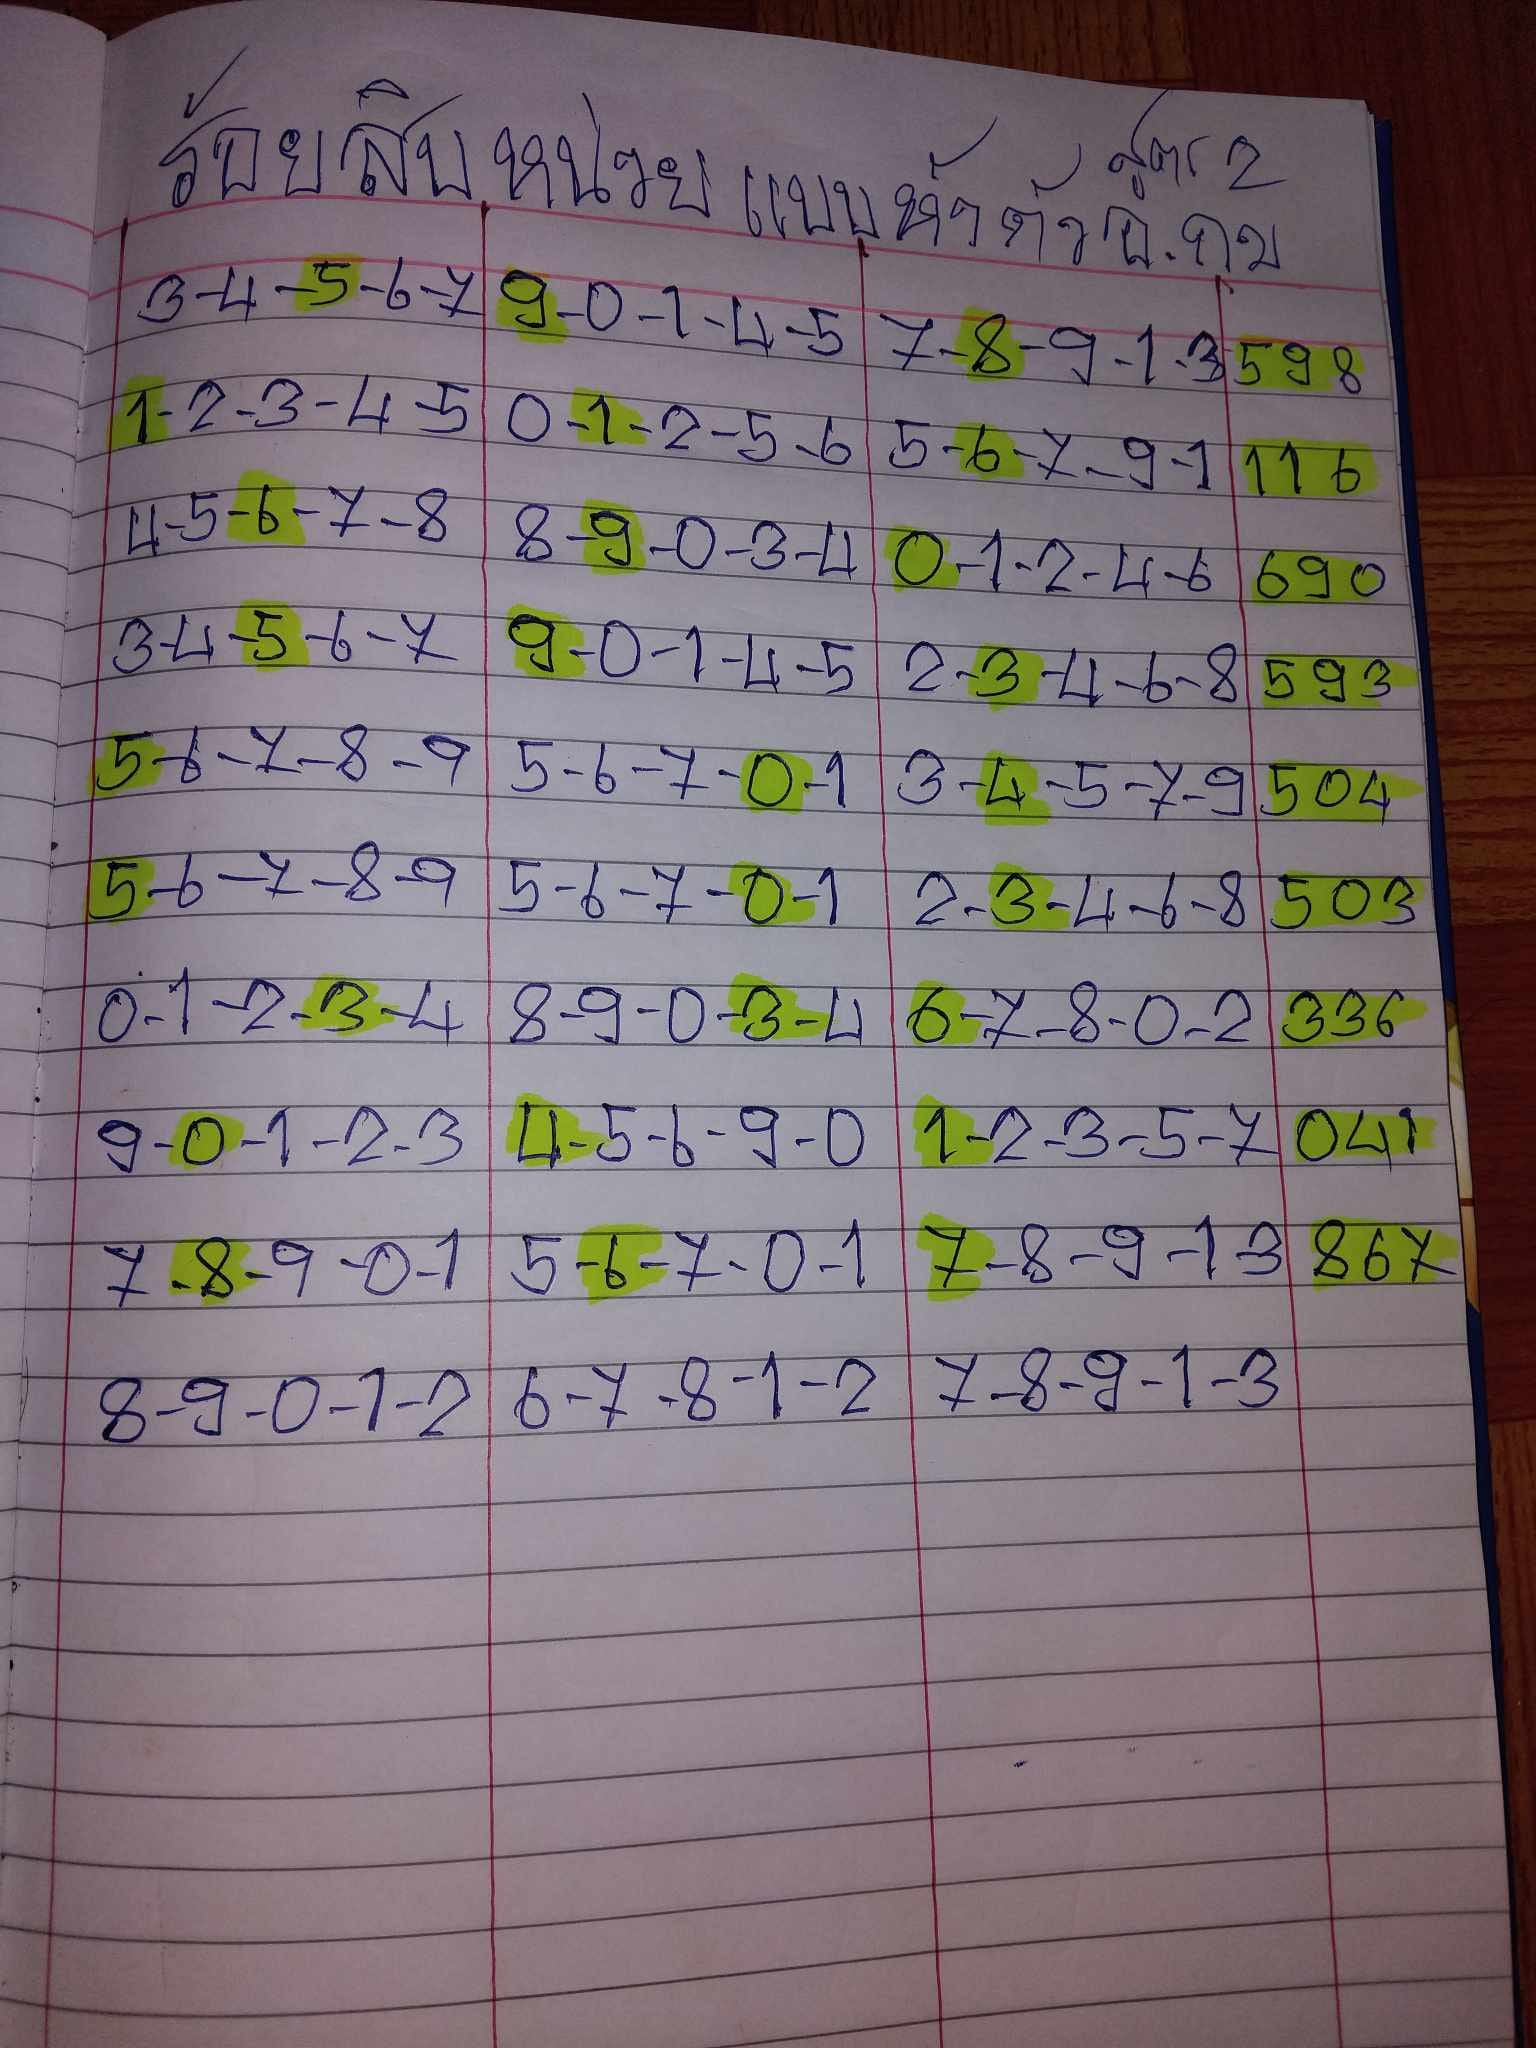 ร้อยสิบหน่วย แบบห้าตัว สูตร 2
อ.คม
3-4-5-6-7 9-0-1-4-5 7-8-9-1-3 598
1-2-3-4-5 0-1-2-5-6 5-6-7-9-1 116
4-5-6-7-8 8-9-0-3-4 0-1-2-4-6 690
3-4-5-6-7 9-0-1-4-5 2-3-4-6-8 593
5-6-7-8-9 5-6-7-0-1 3-4-5-7-9 504
5-6-7-8-9 5-6-7-0-1 2-3-4-6-8 503
0-1-2-3-4 8-9-0-3-4 6-7-8-0-2 336
9-0-1-2-3 4-5-6-9-0 1-2-3-5-7 041
7-8-9-0-1 5-6-7-0-1 7-8-9-1-3 867
8-9-0-1-2 6-7-8-1-2 7-8-9-1-3